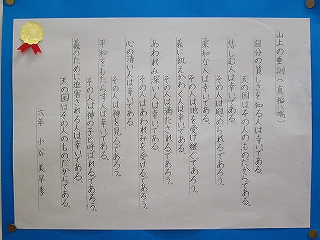 山上の垂訓(真福八端)
自分の貧しさを知る人は幸いである、
天の国はその人のものだからである。
悲しむ人は幸いである、
その人は慰められるであろう。
柔和な人は幸いである、
その人は地を受け継ぐであろう。
義に飢えかわく人は幸いである、
その人は満たされるであろう。
あわれみ深い人は幸いである、
その人はあわれみを受けるであろう。
心の清い人は幸いである、
その人は神を見るであろう。
平和をもたらす人は幸いである、
その人は神の子と呼ばれるであろう。
義のために迫害される人は幸いである、
天の国はその人のものだからである。
六年 小谷